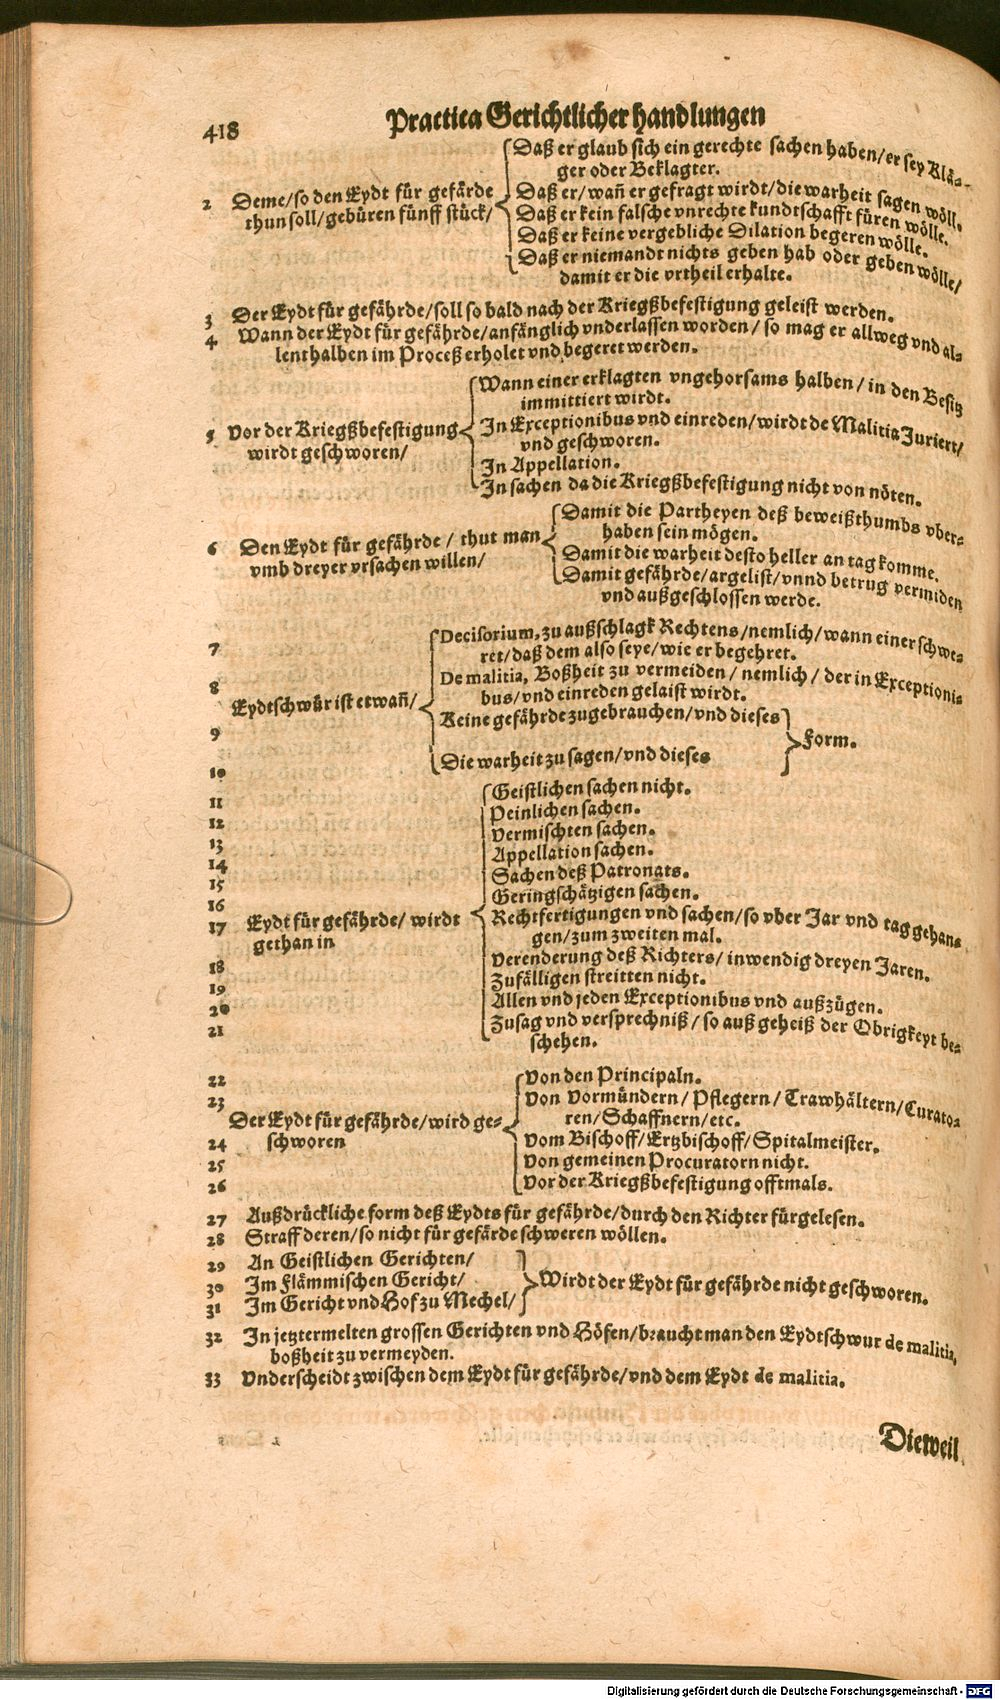 418
Practica Gerichtlicher handlungen
Daß er glaub sich ein gerechte sachen haben/er sey Klä-
ger oder Beklagter.
2 Deme/so den Eydt für gefärde
thun soll/gebüren fünff stück/
Daß er/wañ er gefragt wirdt/die warheit sagen wöll.
Daß er kein falsche vnrechte kundtschafft füren wölle.
Daß er keine vergebliche Dilation begeren wölle.
Daß er niemandt nichts geben hab oder geben wölle/
damit er die vrtheil erhalte.
3 Der Eydt für gefährde/soll so bald nach der Kriegßbefestigung geleist werden.
4 Wann der Eydt für gefährde/anfänglich vnderlassen worden/ so mag er allweg vnd al-
lenthalben im Proceß erholet vnd begeret werden.
Wann einer erklagten vngehorsams halben/ in den Besitz
immittiert wirdt.
5 Vor der Kriegßbefestigung
wirdt geschworen/
In Exceptionibus vnd einreden/wirdt de Malitia Juriert/
vnd geschworen.
In Appellation.
In sachen da die Kriegßbefestigung nicht von nöten.
Damit die Partheyen deß beweißthumbs vber-
haben sein mögen.
6 Den Eydt für gefährde / thut man
vmb dreyer vrsachen willen/
Damit die warheit desto heller an tag komme.
Damit gefährde/argelist/vnnd betrug vermiden
vnd außgeschlossen werde.
7
Decisorium, zu außschlagk Rechtens/nemlich/wann einer schwe-
ret/daß dem also seye/wie er begehret.
8
Eydtschwür ist etwañ/
De malitia, Boßheit zu vermeiden / nemlich / der in Exceptioni-
bus/vnd einreden gelaist wirdt.
9
Keine gefährde zugebrauchen/vnd dieses
Form.
10
Die warheit zu sagen/vnd dieses
11 Geistlichen sachen nicht.
12 Peinlichen sachen.
13 Vermischten sachen.
14 Appellation sachen.
15 Sachen deß Patronats.
16 Geringschätzigen sachen.
17 Eydt für gefährde/ wirdt
gethan in
Rechtfertigungen vnd sachen/so vber Jar vnd tag gehan-
gen/zum zweiten mal.
18 Verenderung deß Richters/ inwendig dreyen Jaren.
19 Zufälligen streitten nicht.
20 Allen vnd jeden Exceptionibus vnd außzügen.
21 Zusag vnd versprechniß/ so auß geheiß der Obrigkeyt be-
schehen.
22 Von den Principaln.
23 Von Vormündern/ Pflegern/ Trawhältern/Curato-
ren/Schaffnern/etc.
Der Eydt für gefährde/wird ge-
schworen
24 Vom Bischoff/Ertzbischoff/Spitalmeister.
25 Von gemeinen Procuratorn nicht.
26 Vor der Kriegßbefestigung offtmals.
27 Außdrückliche form deß Eydts für gefährde/durch den Richter fürgelesen.
28 Straff deren/so nicht für gefärde schweren wöllen.
29 An Geistlichen Gerichten/
30 Im Flämmischen Gericht/
Wirdt der Eydt für gefährde nicht geschworen.
31 Im Gericht vnd Hof zu Mechel/
32 In jetztermelten grossen Gerichten vnd Höfen/braucht man den Eydtschwur de malitia,
boßheit zu vermeyden.
33 Vnderscheidt zwischen dem Eydt für gefährde/vnd dem Eydt de malitia.
Dieweil
Digitalisierung gefördert durch die Deutsche Forschungsgemeinschaft - DFG